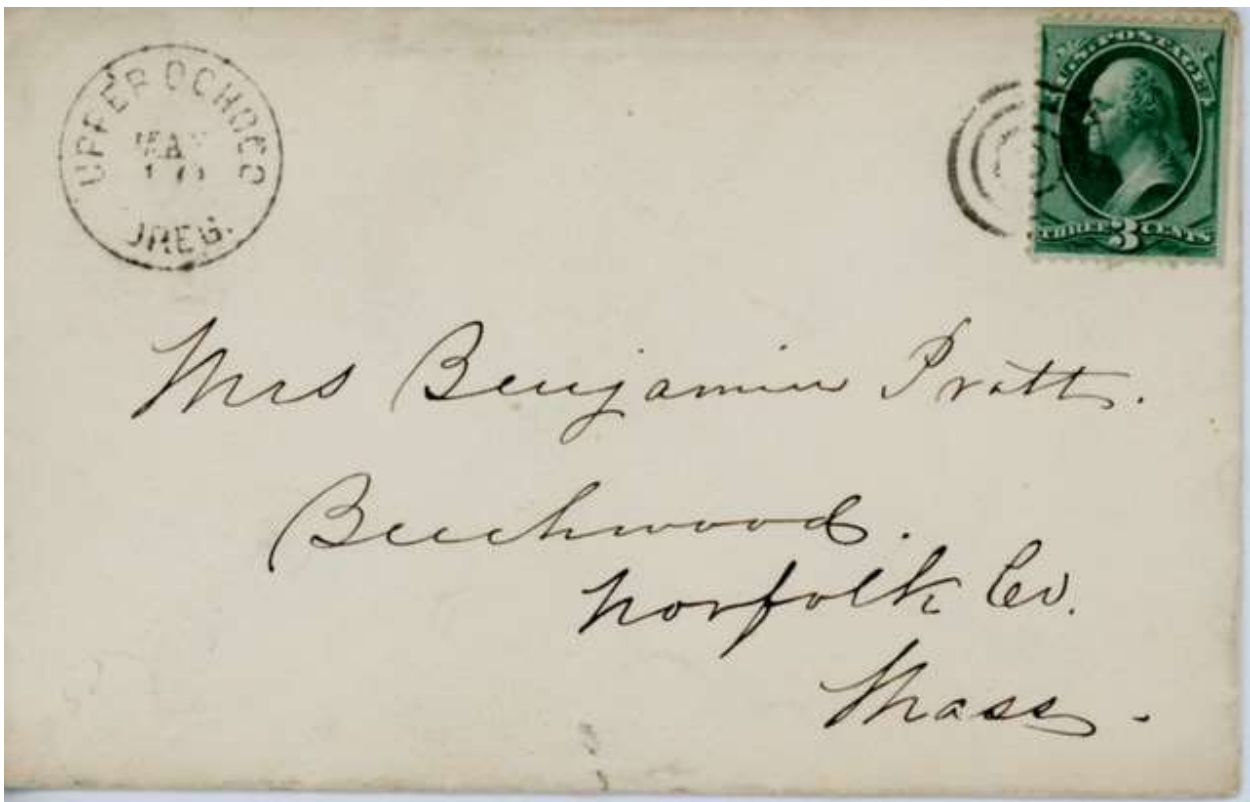 UPPER OCHOCO
MAY
OREG.
U.S. POSTAGE
THREE 3 CENTS
Mrs Benjamin Pratt.
Beechwood.
Norfolk Co.
Mass.